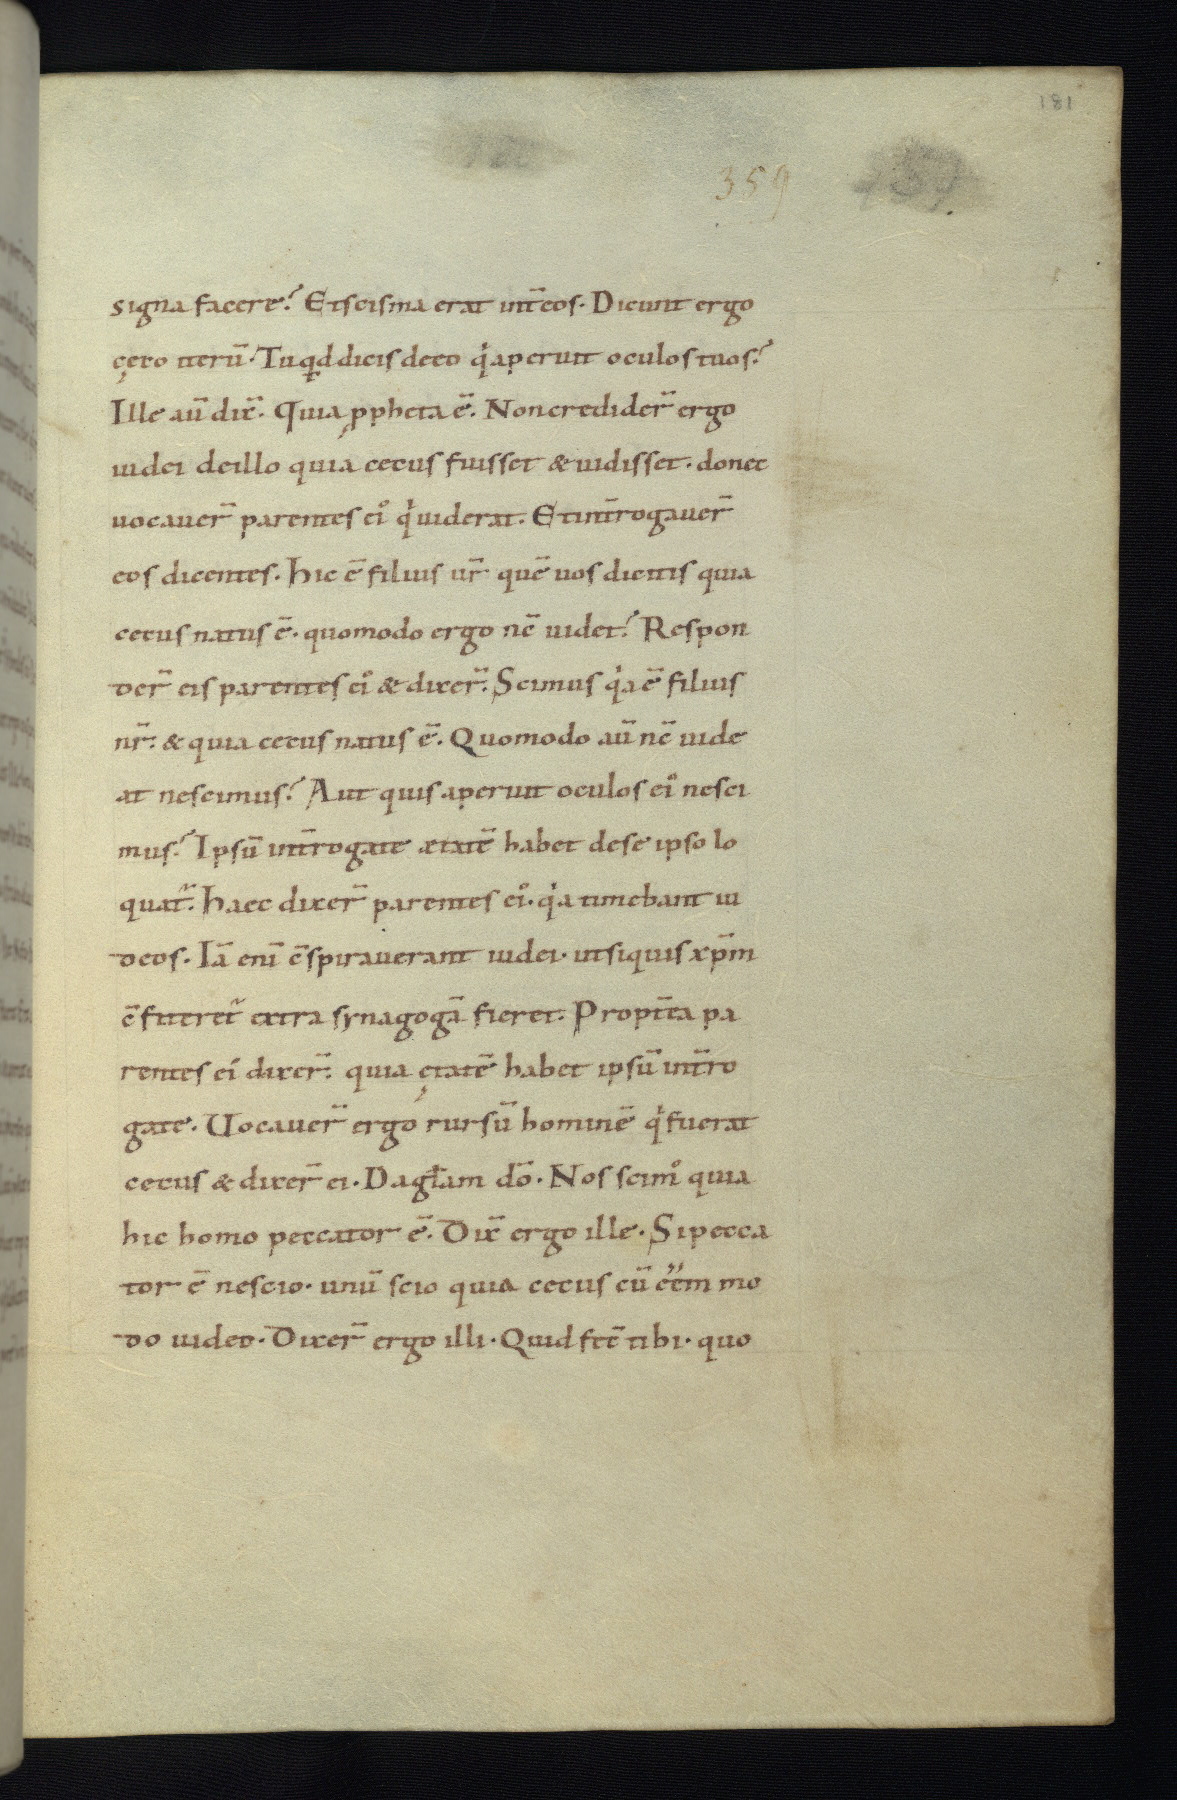 181
359
signa facere? Et scisma erat int̄ eos. Dicunt ergo
ęeco iterū. Tu qd dicis de eo qͥ aperuit oculos tuos?
Ille aū dix̄. Quia ꝓpheta ē. Non credider̄ ergo
iudei de illo quia cecus fuisset & uidisset. donec
uocauer̄ parentes ei᾿ qͥ uiderat. Et int̄rogauer̄
eos dicentes. Hic ē filius ur̄ quē uos dicitis quia
cecus natus ē. quomodo ergo nc̄ uidet? Respon
der̄ eis parentes ei᾿ & dixer̄. Scimus qͥa ē filius
nr̄. & quia cecus natus ē. Quomodo aū nc̄ uide
at nescimus? Aut quis aperuit oculos ei᾿ nesci
mus? Ipsū int̄rogate ætatē habet de se ipso lo
quat᷑. Haec dixer̄ parentes ei᾿. qͥa timebant iu
deos. Iā enī c̄spirauerant iudei. ut si quis xp̄m
c̄fiteret᷑ extra synagogā fieret. Propt̄ea pa
rentes ei᾿ dixer̄. quia ętatē habet ipsū int̄ro
gate. Uocauer̄ ergo rursū hominē qͥ fuerat
cecus & dixer̄ ei. Da gl̄am dō. Nos scim᾿ quia
hic homo peccator ē. Dix̄ ergo ille. Si pecca
tor ē nescio. unū scio quia cecus cū ēēm mo
do uideo. Dixer̄ ergo illi. Quid fec̄ tibi. quo